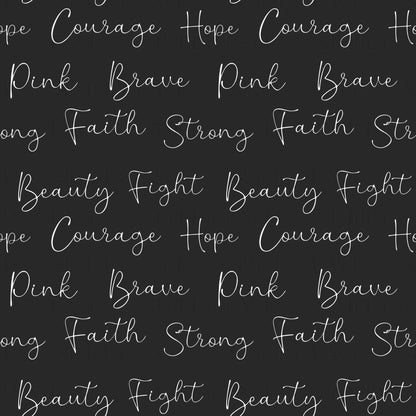 ope Courage Hope Courage
Pink Brave Pink Brave
ong Faith Strong Faith Str
Beauty Fight Beauty Fight
ope Courage Hope Courage
Pink Brave Pink Brave
ong Faith Strong Faith Str
Beauty Fight Beauty Fight